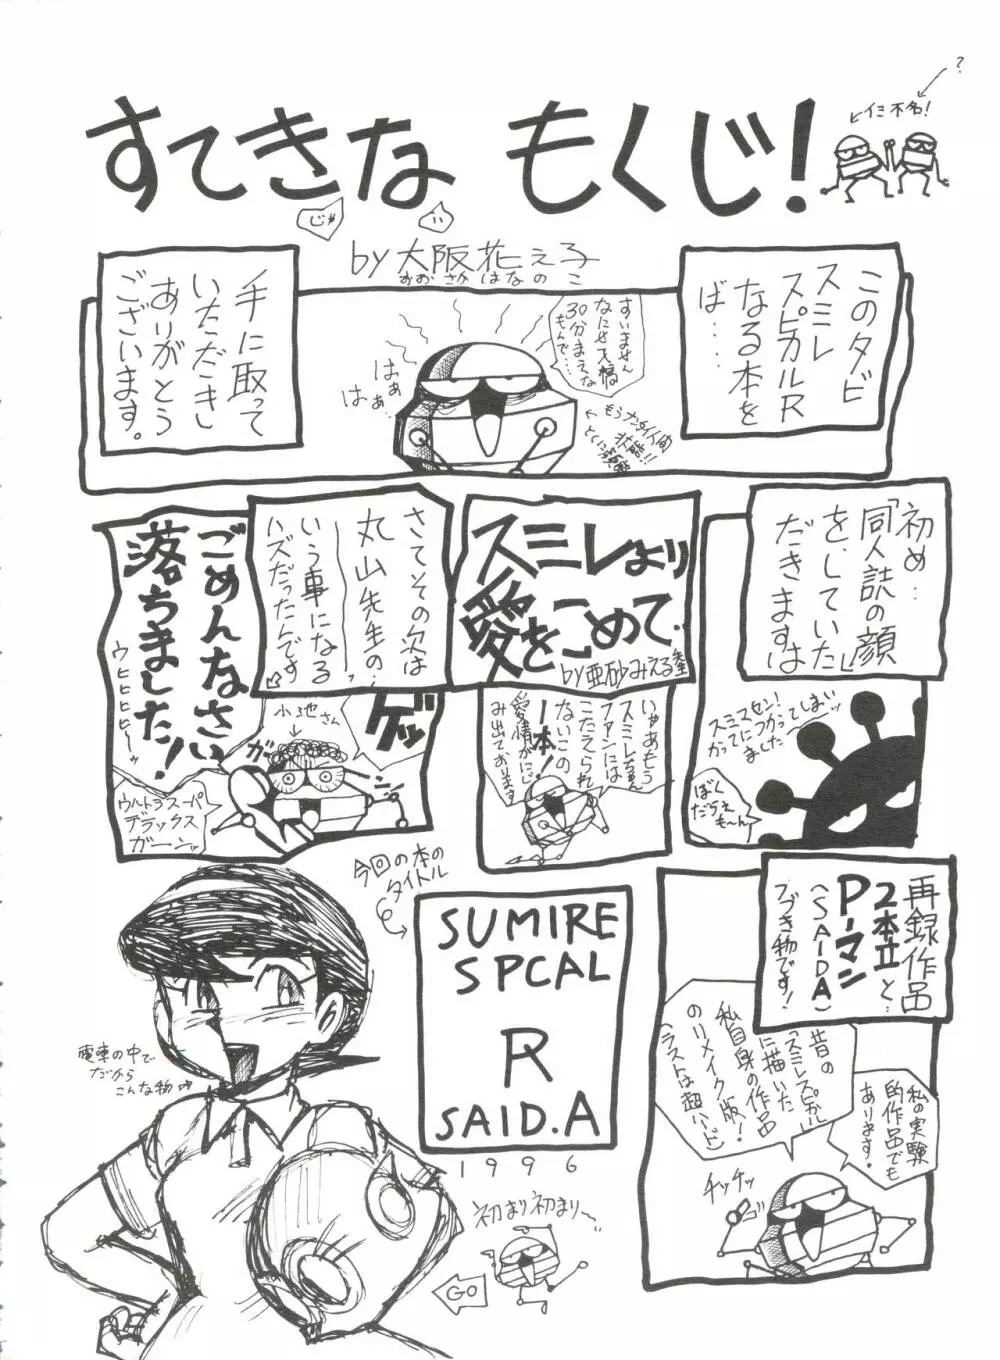 ?
イミ不名!
すてきな もくじ!
じゃ
い
by 大阪花え子
おおさかはなのこ
このタビ
スミレ
スピカルR
なる本を
ば……
手に取って
いただきし
ありがとう
ございます。
すいません
なにせ天橋
30分まえな
もんで…
はぁ
はぁ…
初め…
「同人誌の顔」
をしていた
だきますは
スミマセン!
かってにつかってしまいッ
ました
ぼく
だらえ
も〜ん
スミレより
愛をこめて.
by亜砂みえる
いやあもう
スミレちゃん
ファンには
こたえられ
ないこの
一本!
愛情がにじ
み出ております
さてその次は
丸山先生の…
いう事になる
ハズだったんです
ごめんなさい
落ちました!
ウヒヒヒヒー
小池さん
ゲッ
ガーン
ウルトラスーパ
デラックス
ガーンッ
再録作品
2本立と…
Pーマン
(SAIDA)
つづき物です!
昔の
「スミレスピカル」
に描いた
私自身の作品
のリメイク版!
(ラストは超ハード)
私の実験
的作品でも
あります。
チッチッ
今回の本の
タイトル
SUMIRE
SPCAL
R
SAID.A
1996
電車の中で
だから
こんな物
初まり初まりー
GO